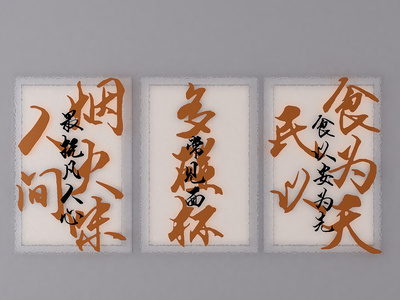 人间
烟火味
最抚凡人心
多杯
常见面
民以
食为天
食以安为先